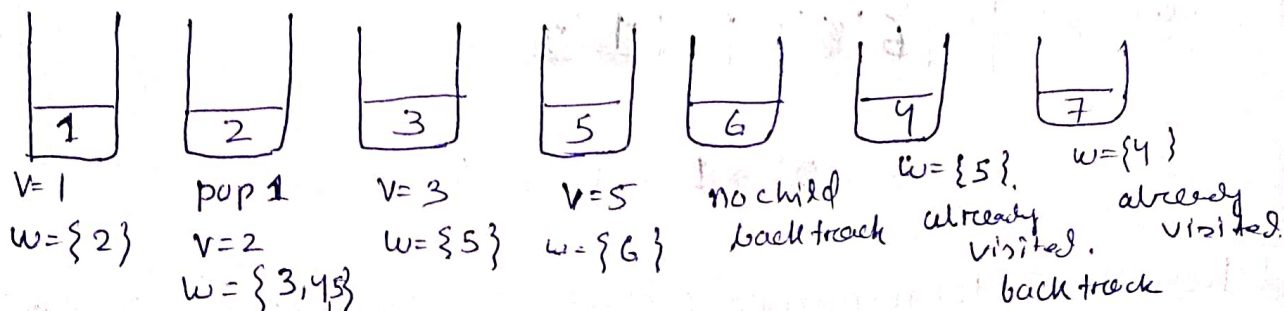 1 2 3 5 6 4 7
V=1
W={2}
pop 1
V=2
W={3,4,5}
V=3
W={5}
V=5
W={6}
no child
backtrack
W={5}.
already
visited.
backtrack
W={4}
already
visited.